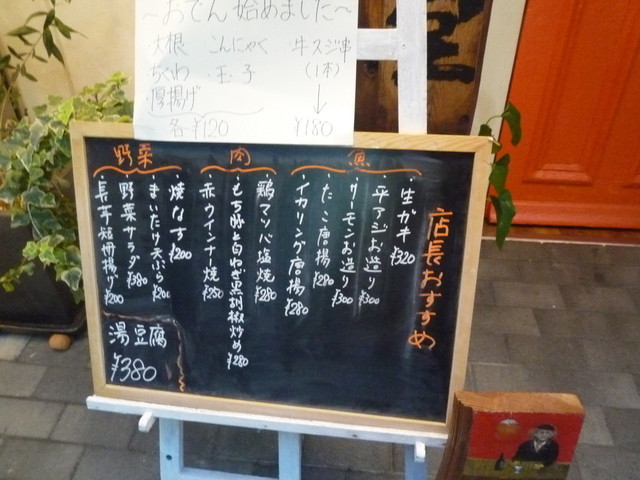 ～おでん始めました～
大根 こんにゃく 牛スジ串
ちくわ ・玉子 (1本)
厚揚げ
各¥120 ¥180
店長おすすめ
魚
・生ガキ ¥320
・平アジお造り ¥300
・サーモンお造り ¥300
・たこ唐揚 ¥280
・イカリング唐揚 ¥280
肉
・鶏ハツ塩焼 ¥280
・もち豚と白ねぎ黒胡椒炒め ¥280
・赤ウインナー焼 ¥250
野菜
・焼なす ¥200
・まいたけ天ぷら ¥200
・野菜サラダ ¥380
・長芋短冊揚げ ¥200
湯豆腐
¥380